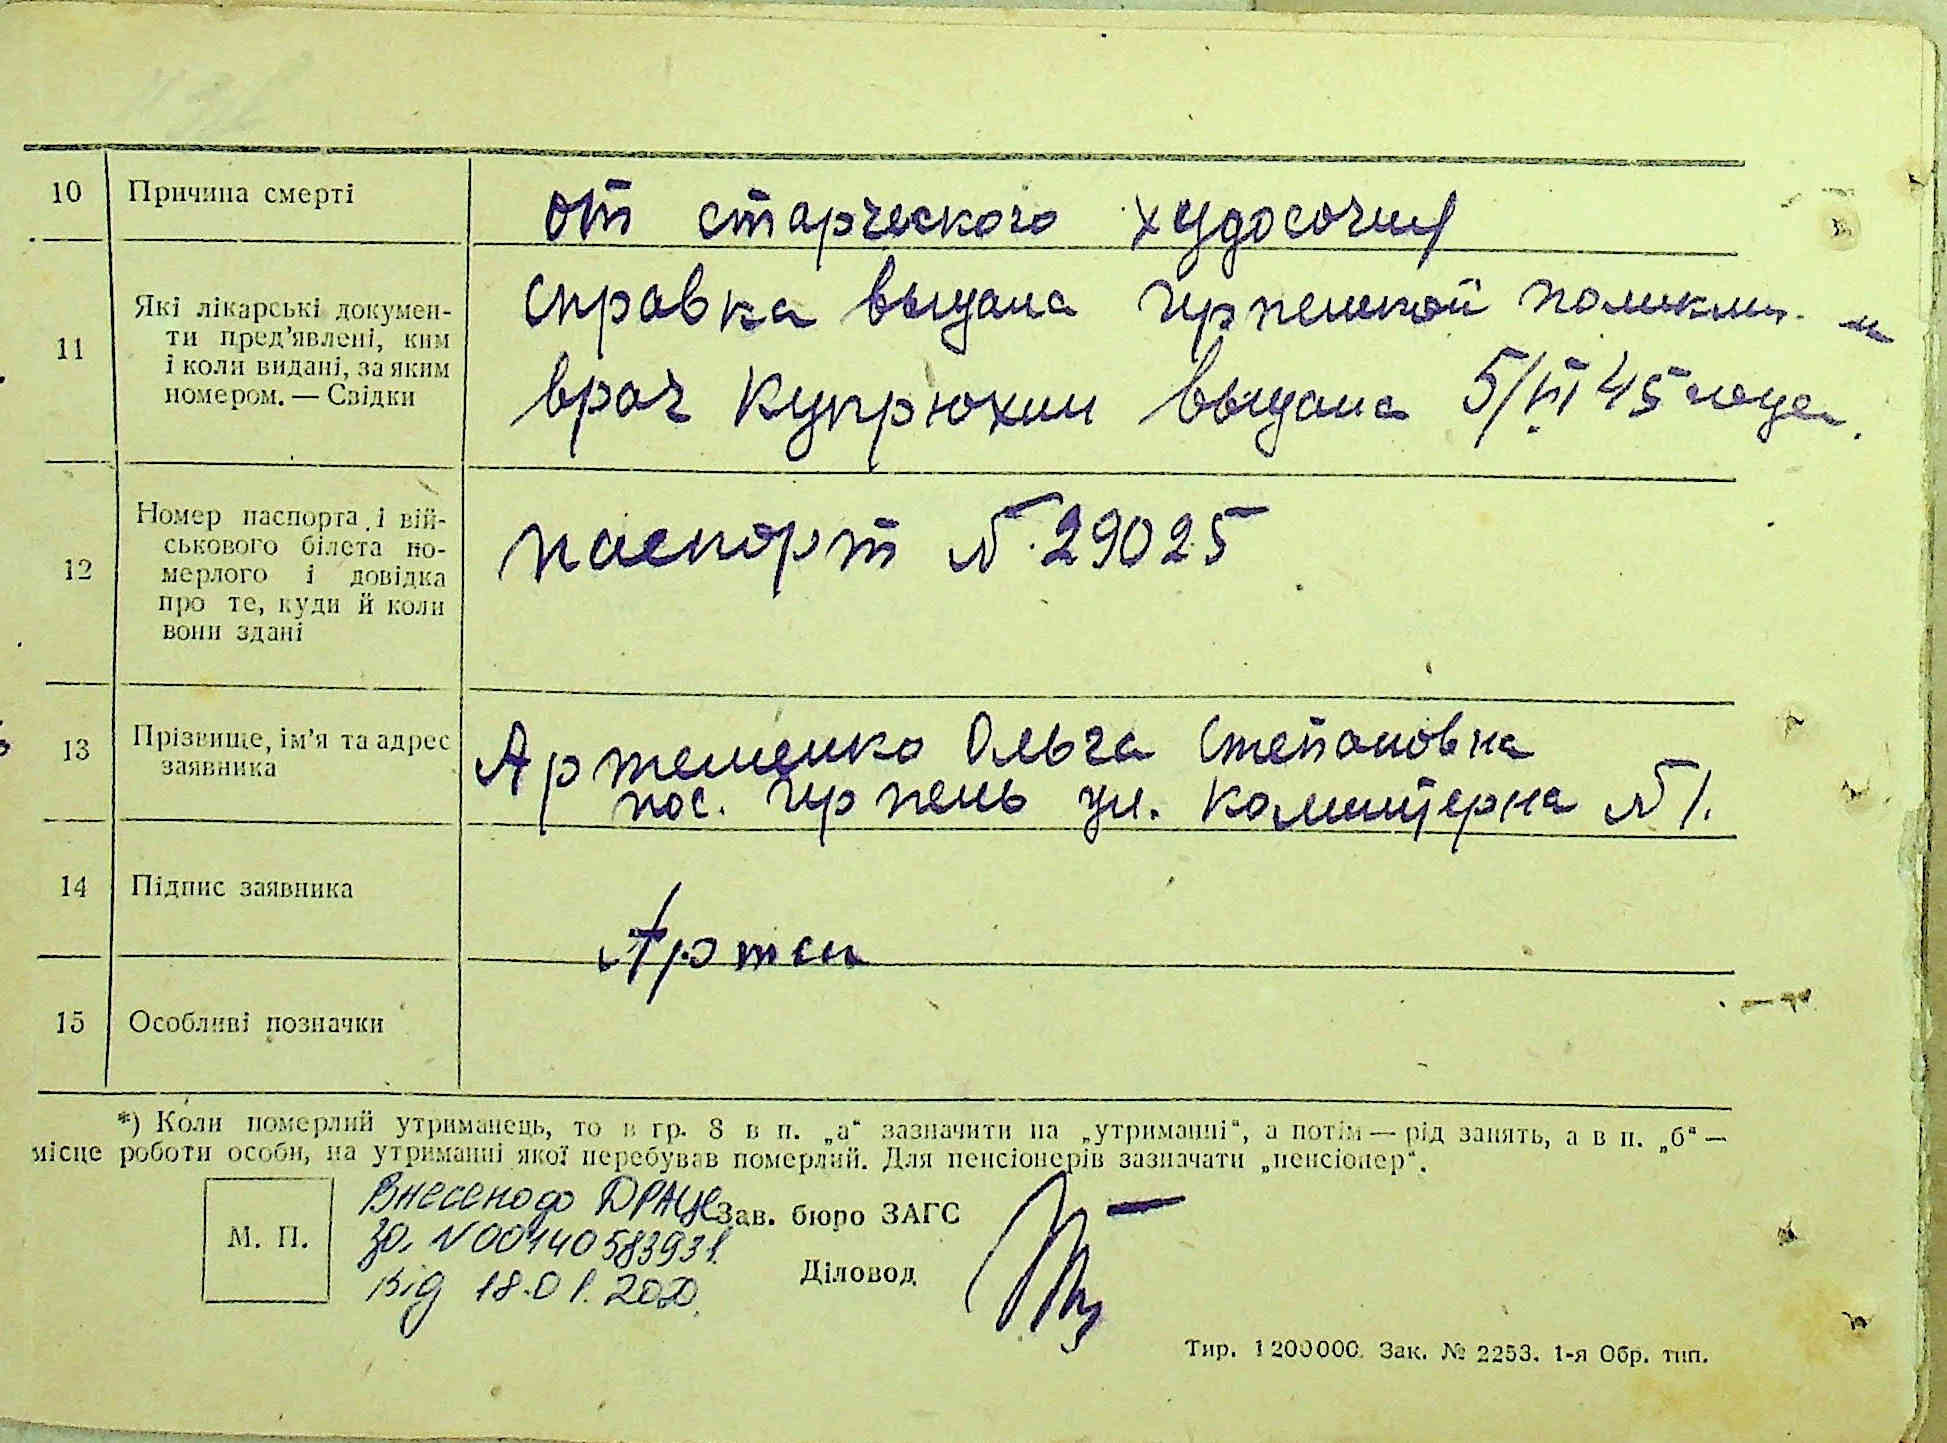 10 Причина смерті
от старческого худосочия
11 Які лікарські докумен-
ти пред’явлені, ким
і коли видані, за яким
номером. — Свідки
справка выдана Ирпенской поликлин. и
врач Купрюхин выдана 5/III 45 года.
12 Номер паспорта і вій-
ськового білета по-
мерлого і довідка
про те, куди й коли
вони здані
паспорт № 29025
13 Прізвище, ім’я та адрес
заявника
Артеменко Ольга Степановна
пос. Ирпень ул. Коминтерна № 1.
14 Підпис заявника
Артем
15 Особливі позначки
*) Коли померлий утриманець, то в гр. 8 в п. „а“ зазначити на „утриманні“, а потім — рід занять, а в п. „б“ —
місце роботи особи, на утриманні якої перебував померлий. Для пенсіонерів зазначати „пенсіонер“.
М. П.
Внесено до ДРАЦС
за N 00140583931
від 18.01.2020.
Зав. бюро ЗАГС
Діловод
Тир. 1200000. Зак. № 2253. 1-я Обр. тип.